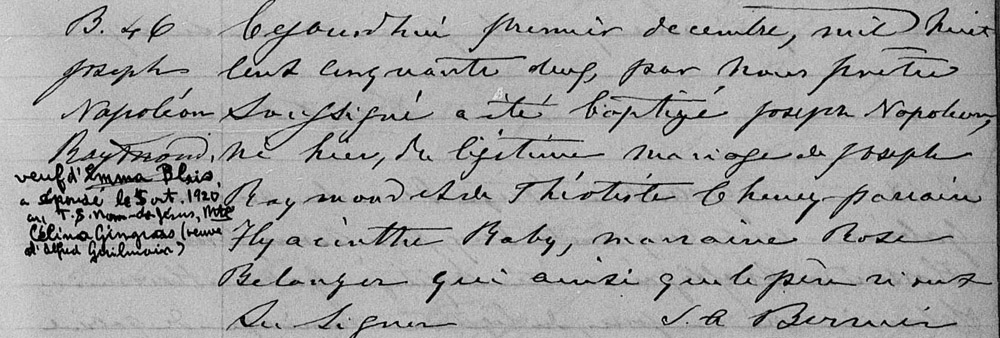 B. 46
Joseph
Napoléon
Raymond,
veuf d'Emma Blais,
a épousé le 5 oct. 1920
au T. S. Nom-de-Jésus, Mtl
Célina Gingras (veuve
d'
Cejourdhui premier decembre, mil huit
cent cinquante deux, par nous prêtre
Soussigné a été baptizé Joseph Napoleon,
né hier, du légitime mariage de Joseph
Raymond et de Théotiste Cheney parrain
Hyacinthe Raby, marraine Rose
Belanger qui ainsi que le père n'ont
Su Signer J. A Bernier